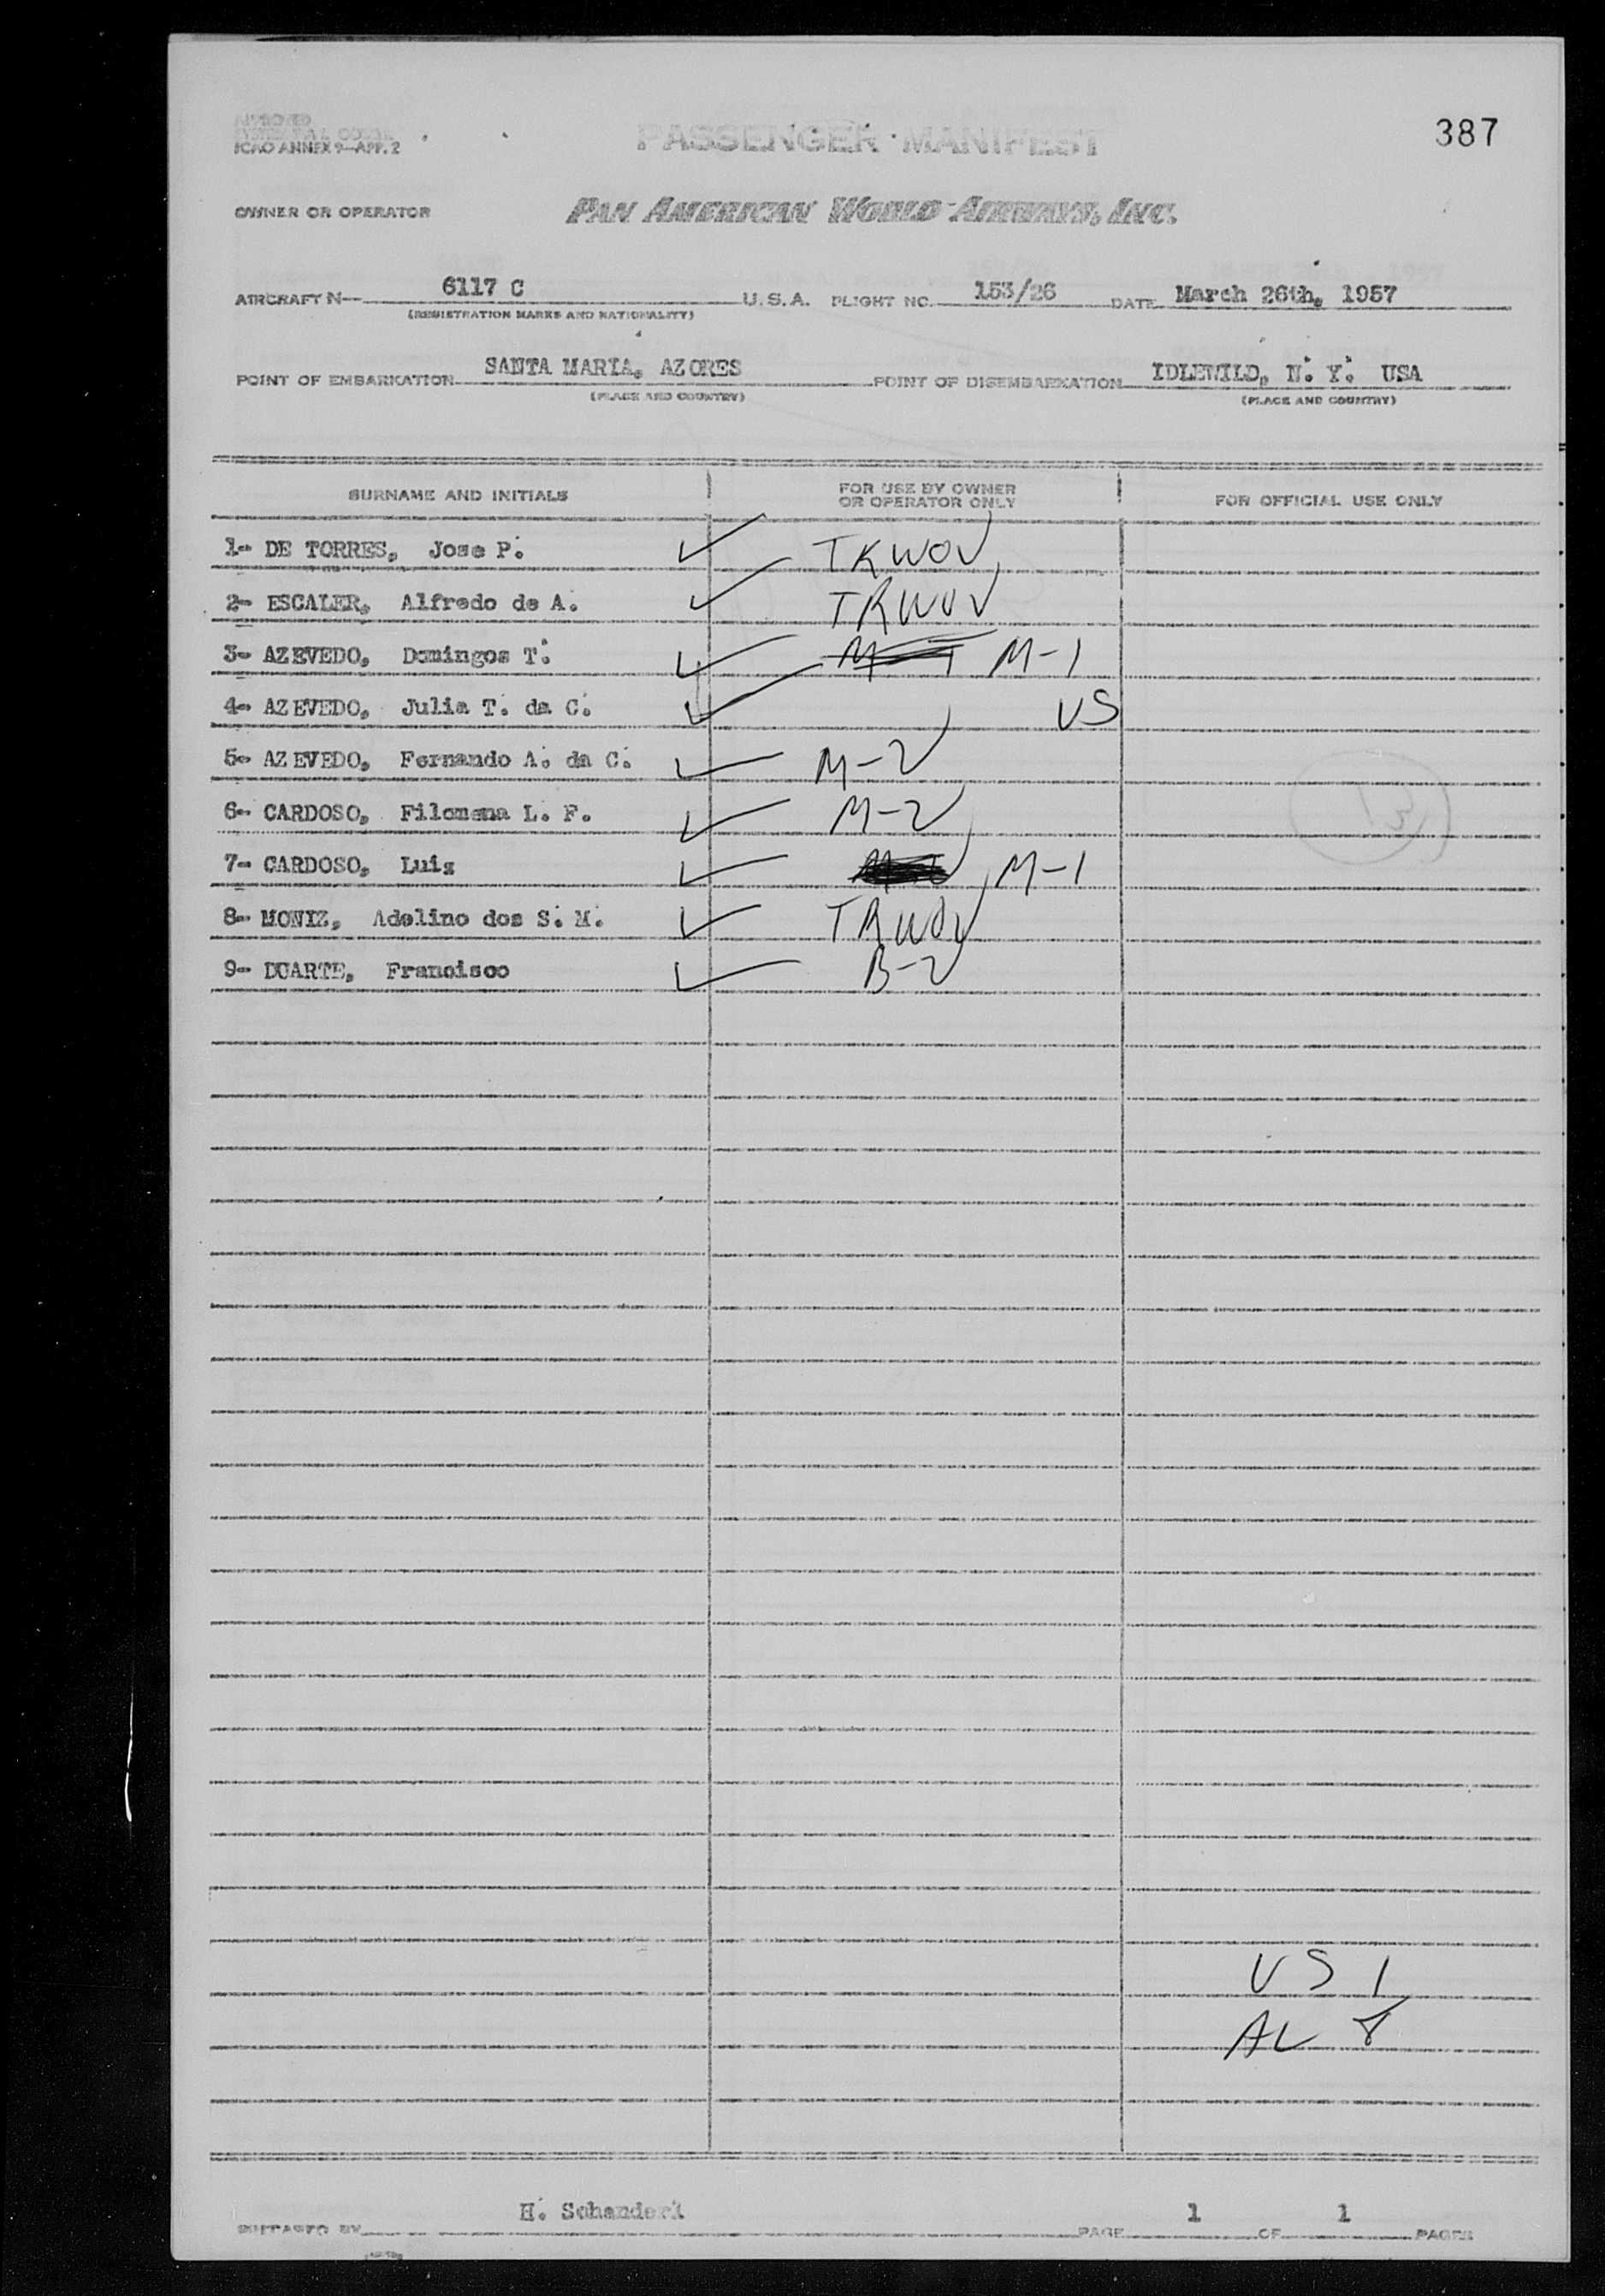 387
ICAO ANNEX 9—APP. 2
PASSENGER MANIFEST
OWNER OR OPERATOR PAN AMERICAN WORLD AIRWAYS, INC.
AIRCRAFT N— 6117 C U.S.A. FLIGHT NO. 153/26 DATE March 26th, 1957
(REGISTRATION MARKS AND NATIONALITY)
POINT OF EMBARKATION SANTA MARIA, AZORES POINT OF DISEMBARKATION IDLEWILD, N. Y. USA
(PLACE AND COUNTRY) (PLACE AND COUNTRY)
SURNAME AND INITIALS FOR USE BY OWNER OR OPERATOR ONLY FOR OFFICIAL USE ONLY
1- DE TORRES, Jose P. TRWOV
2- ESCALER, Alfredo de A. TRWOV
3- AZEVEDO, Domingos T. M-1
4- AZEVEDO, Julia T. da C. US
5- AZEVEDO, Fernando A. da C. M-2
6- CARDOSO, Filomena L. F. M-2
7- CARDOSO, Luiz M-1
8- MONIZ, Adelino dos S. M. TRWOV
9- DUARTE, Francisco B-2
US 1
AL 8
PREPARED BY H. Schanderl PAGE 1 OF 1 PAGES